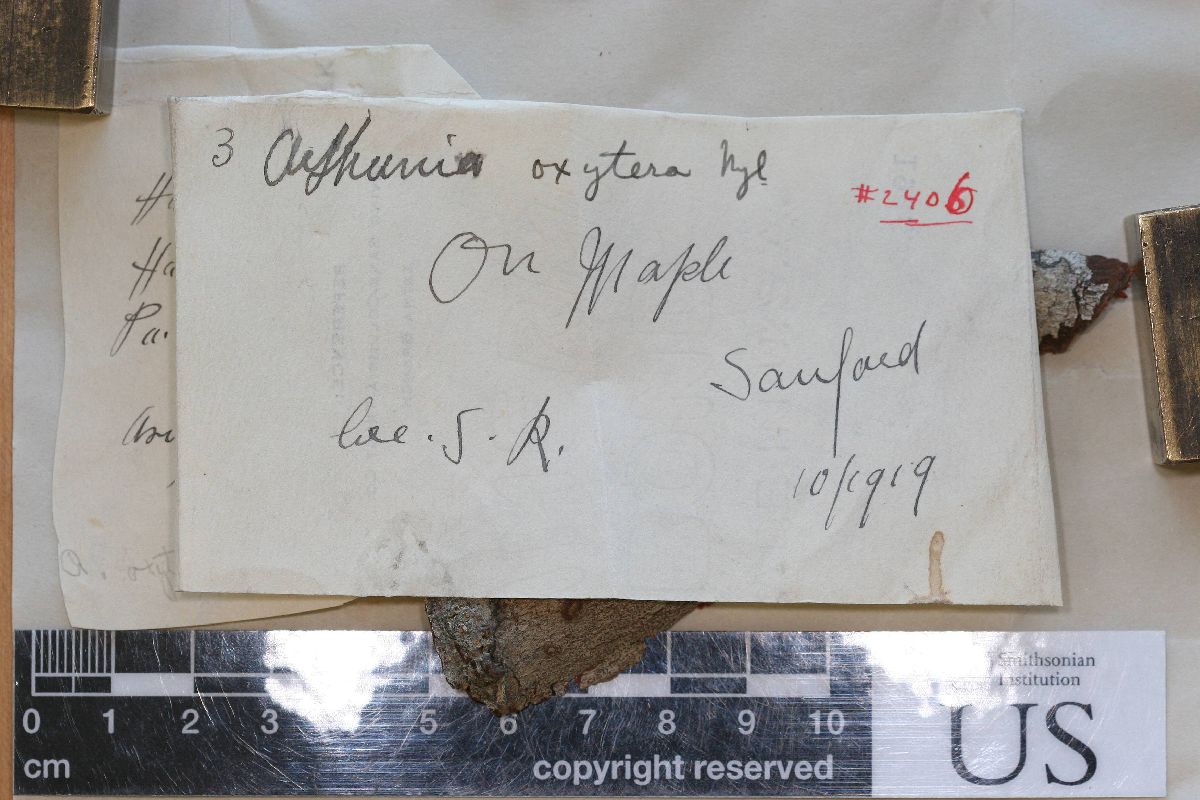 3 Arthonia oxytera Nyl
#2406
On Maple
Sanford
Coll. S. R.
10/1919
Ha
Ha
Pa.
REFERENCE
0 1 2 3 5 6 7 8 9 10
cm
copyright reserved
Smithsonian
Institution
US